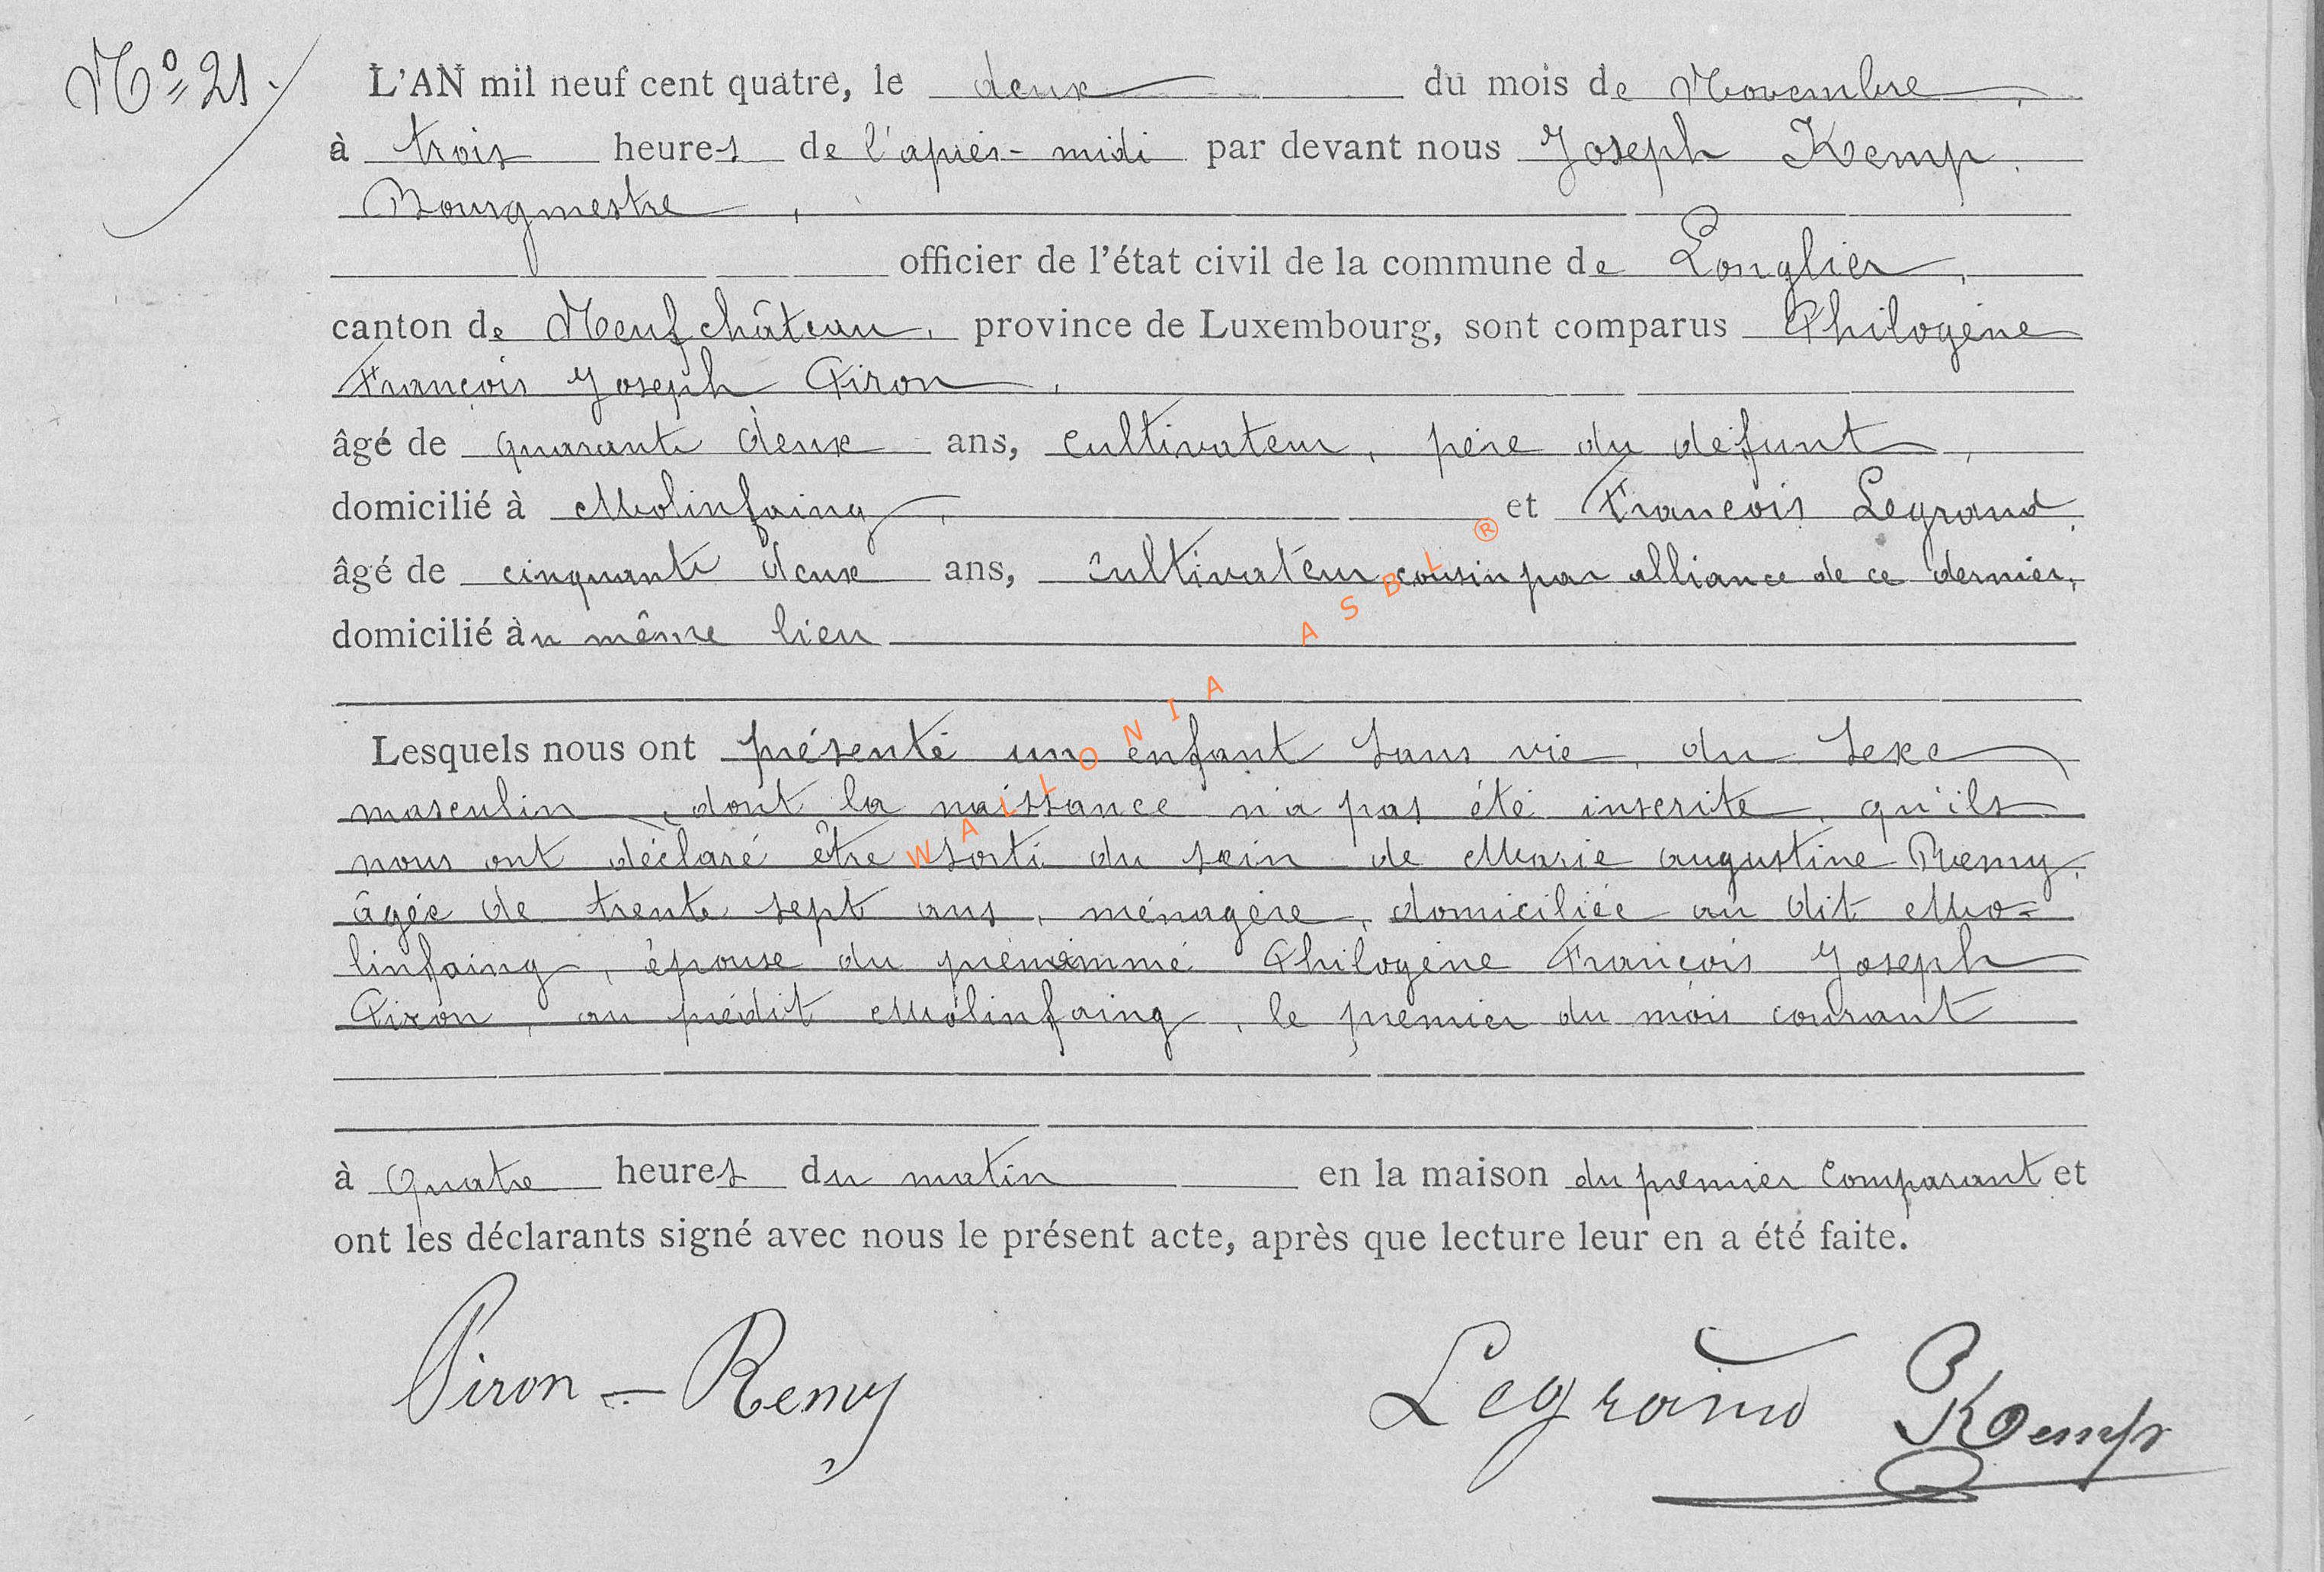 Nº 21.
L'AN mil neuf cent quatre, le deux du mois de Novembre,
à trois heures de l'après-midi par devant nous Joseph Kemp,
Bourgmestre,
officier de l'état civil de la commune de Longlier,
canton de Neufchâteau, province de Luxembourg, sont comparus Philogène
François Joseph Piron,
âgé de quarante deux ans, cultivateur, père du défunt,
domicilié à Molinfaing, et François Legrand,
âgé de cinquante deux ans, cultivateur cousin par alliance de ce dernier,
domicilié au même lieu
Lesquels nous ont présenté un enfant sans vie, du sexe
masculin, dont la naissance n'a pas été inscrite, qu'ils
nous ont déclaré être sorti du sein de Marie Augustine Remy,
âgée de trente sept ans, ménagère, domiciliée au dit Mo=
linfaing, épouse du prénommé Philogène François Joseph
Piron, au prédit Molinfaing, le premier du mois courant
à quatre heures du matin en la maison du premier comparant et
ont les déclarants signé avec nous le présent acte, après que lecture leur en a été faite.
Piron-Remy Legrand Kemp
WALLONIA ASBL ®